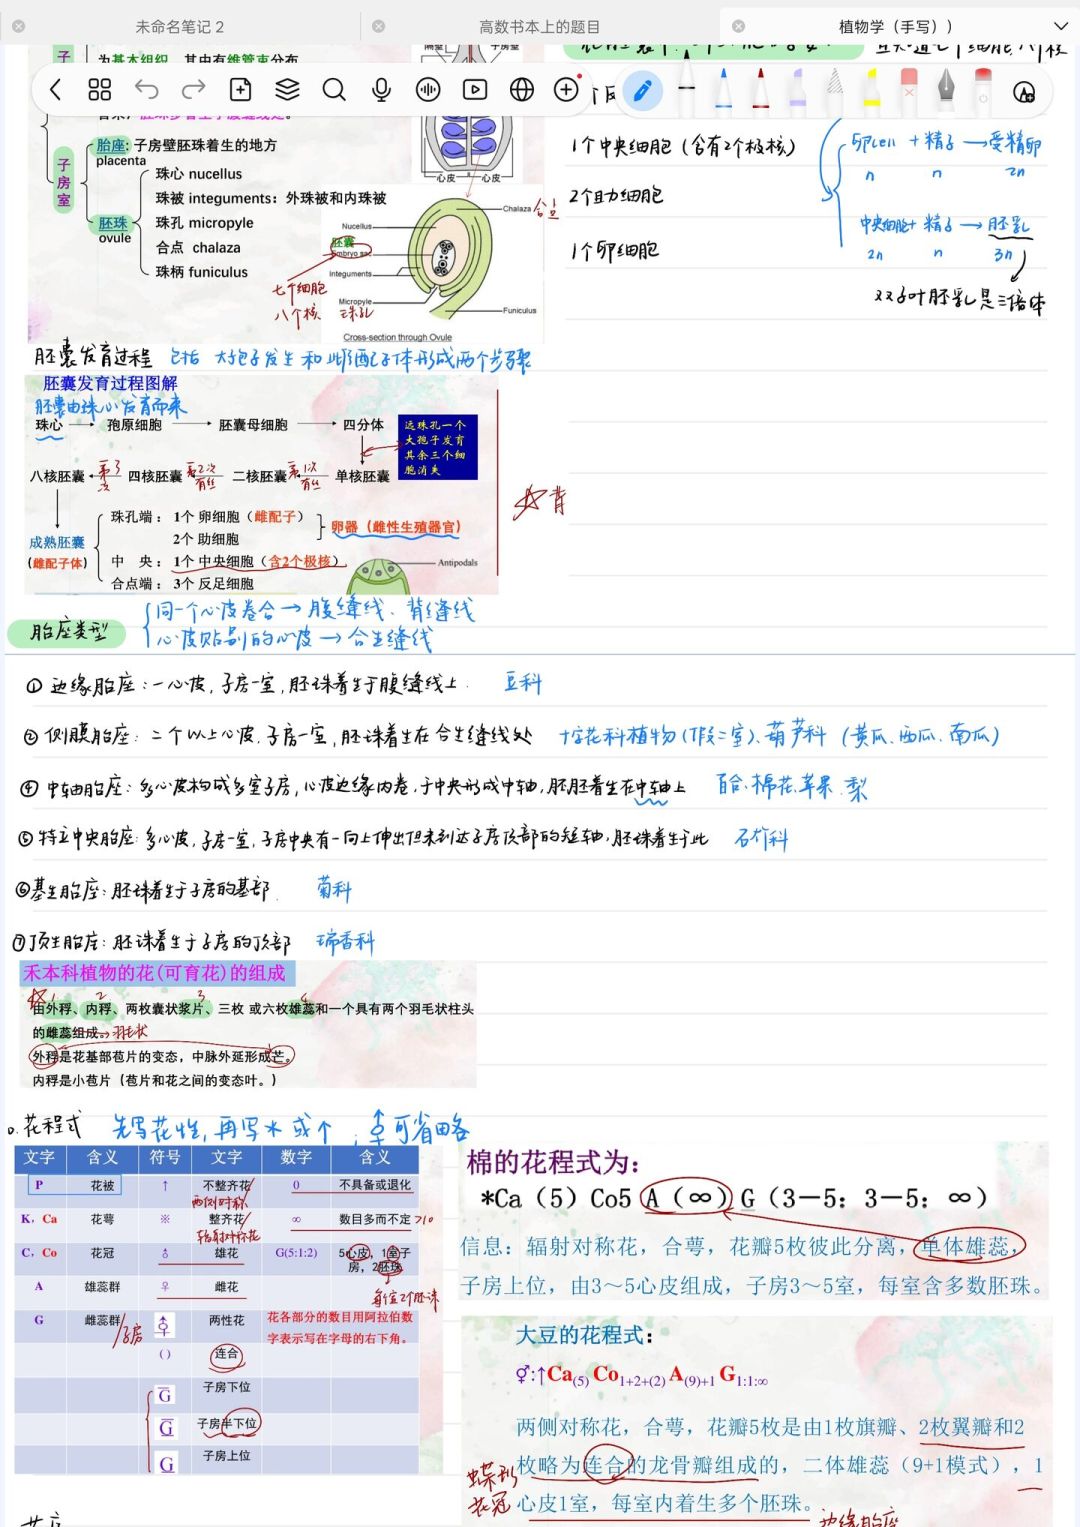 未命名笔记 2
高数书本上的题目
植物学（手写））
子
为基本组织，其中有维管束分布
子房室
胎座: 子房壁胚珠着生的地方
placenta
珠心 nucellus
珠被 integuments：外珠被和内珠被
胚珠
ovule
珠孔 micropyle
合点 chalaza
珠柄 funiculus
心皮 心皮
Chalaza 合点
Nucellus
胚囊
embryo sac
Integuments
七个细胞
八个核
Micropyle
珠孔
Funiculus
Cross-section through Ovule
1个中央细胞（含有2个极核）
2个助细胞
1个卵细胞
卵cell + 精子 → 受精卵
n n 2n
中央细胞 + 精子 → 胚乳
2n n 3n
双子叶胚乳是三倍体
胚囊发育过程 包括 大孢子发生和雌配子体形成两个步骤
胚囊发育过程图解
胚囊由珠心发育而来
珠心 → 孢原细胞 → 胚囊母细胞 → 四分体
远珠孔一个
大孢子发育
其余三个细
胞消失
八核胚囊 ← 第3次 四核胚囊 ← 第2次有丝 二核胚囊 ← 第1次有丝 单核胚囊
☆背
珠孔端： 1个 卵细胞（雌配子）
2个 助细胞
卵器（雌性生殖器官）
成熟胚囊
(雌配子体)
中 央： 1个 中央细胞（含2个极核）
合点端： 3个 反足细胞
Antipodals
胎座类型
同一个心皮卷合 → 腹缝线、背缝线
心皮贴别的心皮 → 合生缝线
① 边缘胎座：一心皮，子房一室，胚珠着生于腹缝线上. 豆科
② 侧膜胎座：二个以上心皮，子房一室，胚珠着生在合生缝线处 十字花科植物（假二室）、葫芦科（黄瓜、西瓜、南瓜）
④ 中轴胎座：多心皮构成多室子房，心皮边缘内卷，于中央形成中轴，胚胚着生在中轴上 百合、棉花、苹果、梨
⑤ 特立中央胎座：多心皮，子房一室，子房中央有一向上伸出但未到达子房顶部的短轴，胚珠着生于此 石竹科
⑥ 基生胎座：胚珠着生于子房的基部. 菊科
⑦ 顶生胎座：胚珠着生于子房的顶部 瑞香科
禾本科植物的花(可育花)的组成
1 2 3 4
由外稃、内稃、两枚囊状浆片、三枚 或六枚雄蕊和一个具有两个羽毛状柱头
的雌蕊组成。→羽毛状
外稃是花基部苞片的变态，中脉外延形成芒。
内稃是小苞片（苞片和花之间的变态叶。）
花程式 先写花性，再写 * 或 ↑ ; ⚥ 可省略
文字 含义 符号 文字 数字 含义
P 花被 ↑ 不整齐花 0 不具备或退化
两侧对称
K，Ca 花萼 ※ 整齐花 ∞ 数目多而不定 >10
辐射对称花
C，Co 花冠 ♂ 雄花 G(5:1:2) 5心皮，1室子
房，2胚珠
A 雄蕊群 ♀ 雌花 每室2个胚珠
G 雌蕊群/子房 ⚥ 两性花 花各部分的数目用阿拉伯数
字表示写在字母的右下角。
( ) 连合
G 子房下位
G 子房半下位
G 子房上位
棉的花程式为：
*Ca（5）Co5 A（∞）G（3—5：3—5：∞）
信息：辐射对称花，合萼，花瓣5枚彼此分离，单体雄蕊，
子房上位，由3～5心皮组成，子房3～5室，每室含多数胚珠。
大豆的花程式：
⚥:↑Ca(5) Co1+2+(2) A(9)+1 G1:1:∞
两侧对称花，合萼，花瓣5枚是由1枚旗瓣、2枚翼瓣和2
枚略为连合的龙骨瓣组成的，二体雄蕊（9+1模式），1
心皮1室，每室内着生多个胚珠。
蝶形
花冠
边缘胎座